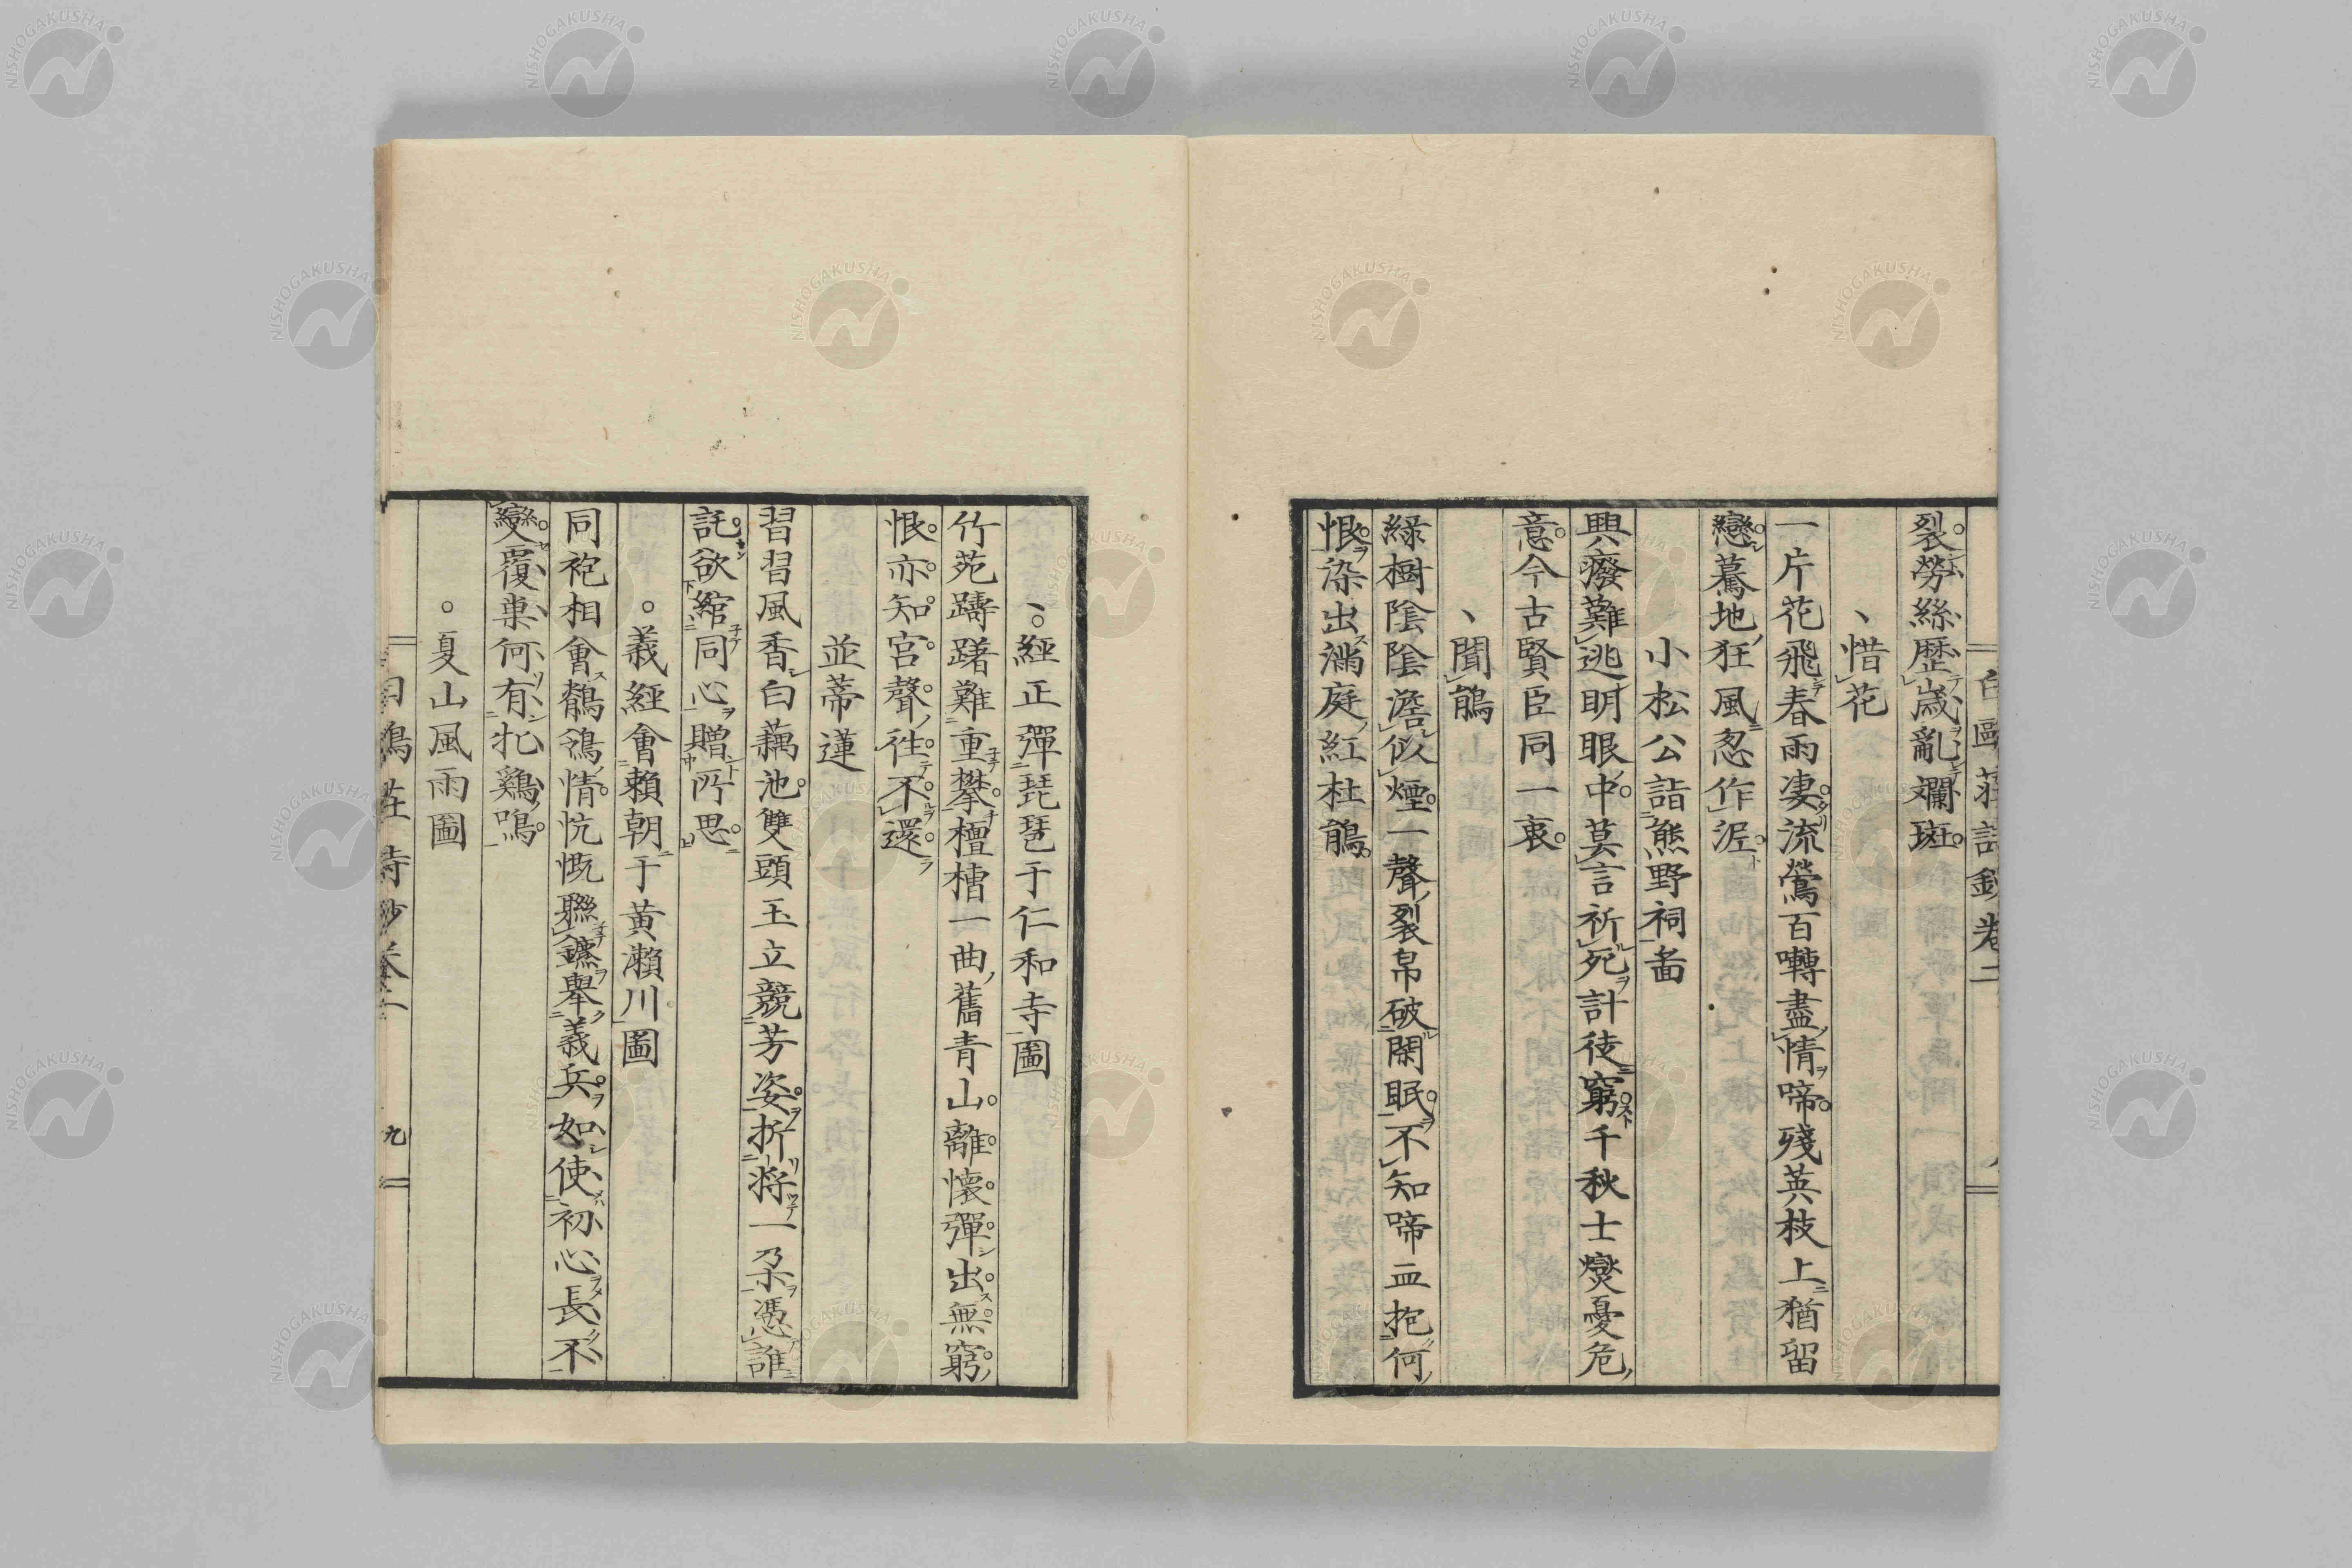 白鷗莊詩鈔卷二
裂勞絲歷歲亂斕斑
惜花
一片花飛春雨凄流鶯百囀盡情啼殘英枝上猶留
戀驀地狂風忽作泥
小松公詣熊野祠啚
興癈難逃明眼中莫言祈死計徒窮千秋士燮憂危
意今古賢臣同一衷
聞鵑
綠樹陰陰澹似煙一聲裂帛破閑眠不知啼血抱何
恨染出滿庭紅杜鵑
經正彈琵琶于仁和寺圖
竹苑躊躇難重攀檀槽一曲舊青山離懷彈出無窮
恨亦知宮聲往不還
並蒂蓮
習習風香白藕池雙頭玉立競芳姿折將一朶憑誰
託欲綰同心贈所思
義經會賴朝于黃瀨川圖
同袍相會鶺鴒情忼慨聯鑣舉義兵如使初心長不
變覆巢何有牝鷄鳴
夏山風雨圖
白鷗莊詩鈔卷二
九
NISHOGAKUSHA